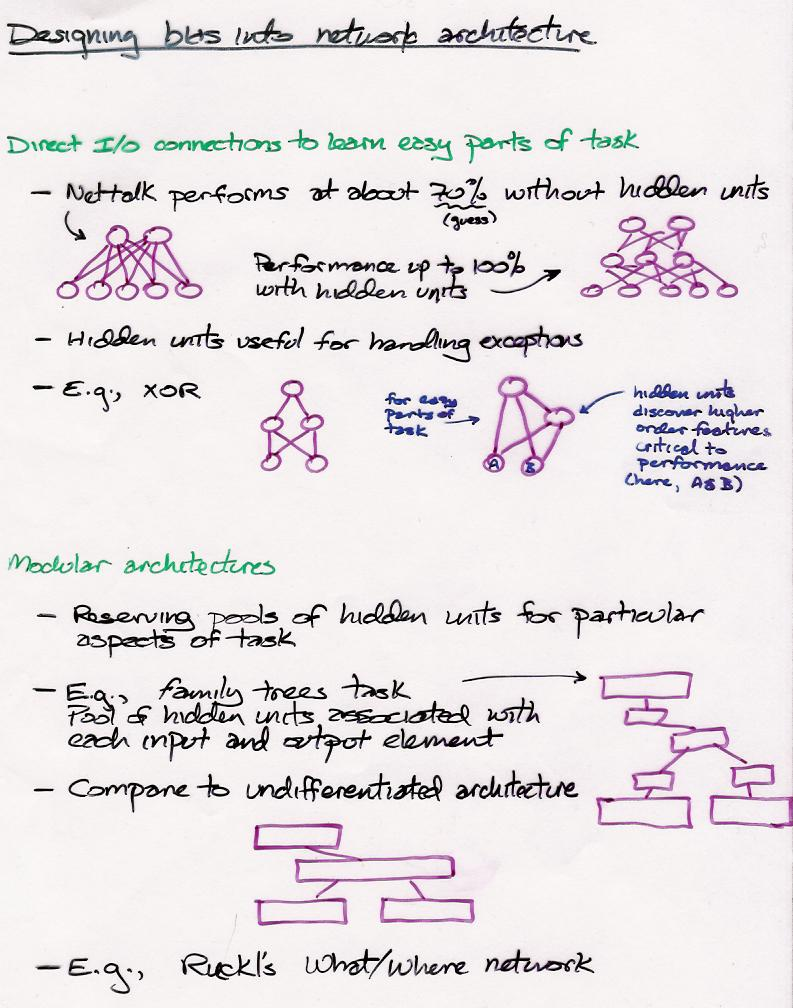 Designing bias into network architecture
Direct I/O connections to learn easy parts of task
— Nettalk performs at about 70% without hidden units
(guess)
Performance up to 100%
with hidden units
— Hidden units useful for handling exceptions
— E.g., XOR
for easy
parts of
task
A B
hidden units
discover higher
order features
critical to
performance
(here, A&B)
Modular architectures
— Reserving pools of hidden units for particular
aspects of task
— E.g., family trees task
Pool of hidden units associated with
each input and output element
— Compare to undifferentiated architecture
— E.g., Rueckl's What/Where network